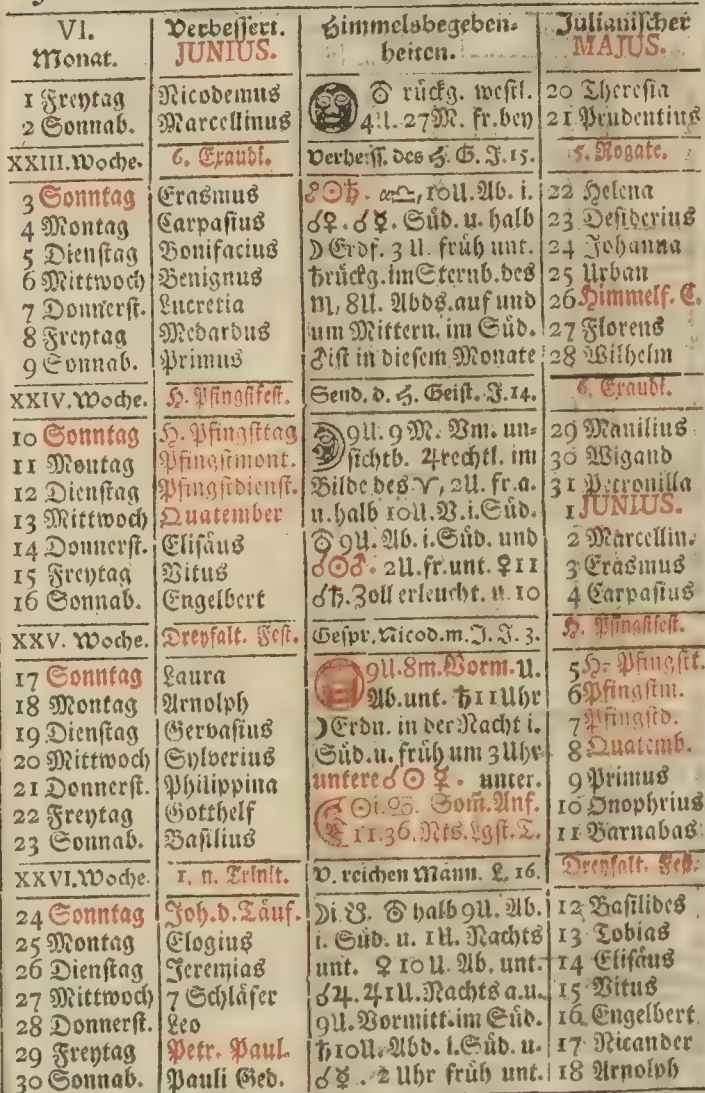 VI. Verbessert. Himmelsbegeben- Julianischer
Monat. JUNIUS. heiten. MAJUS.
1 Freytag Nicodemus ♅ rückg. westl. 20 Theresia
2 Sonnab. Marcellinus 4 U. 27 M. fr. bey 21 Prudentius
XXIII. Woche. 6. Exaudi. Verheiss. des H. G. J. 15. 5. Rogate.
3 Sonntag Erasmus ☍☉♄. 10 U. Ab. i. 22 Helena
4 Montag Carpasius ☌♀. ☌☿. Süd. u. halb 23 Desiderius
5 Dienstag Bonifacius ☽ Erdf. 3 U. früh unt. 24 Johanna
6 Mittwoch Benignus ♄ rückg. im Sternb. des 25 Urban
7 Donnerst. Lucretia ♏, 8 U. Abds. auf und 26 Himmelf. C.
8 Freytag Medardus um Mittern. im Süd. 27 Florens
9 Sonnab. Primus ♂ ist in diesem Monate 28 Wilhelm
XXIV. Woche. H. Pfingstfest. Send. d. H. Geist. J. 14. 6. Exaudi.
10 Sonntag H. Pfingsttag 9 U. 9 M. Vm. un- 29 Manilius
11 Montag Pfingstmont. sichtb. ♃ rechtl. im 30 Wigand
12 Dienstag Pfingstdienst. Bilde des ♈, 2 U. fr. a. 31 Petronilla
13 Mittwoch Quatember u. halb 10 U. V. i. Süd. 1 JUNIUS.
14 Donnerst. Elisäus ♅ 9 U. Ab. i. Süd. und 2 Marcellin.
15 Freytag Vitus ☌☉♂. 2 U. fr. unt. ♀ 11 3 Erasmus
16 Sonnab. Engelbert ☌♄. Zoll erleucht. u. 10 4 Carpasius
XXV. Woche. Dreyfalt. Fest. Gespr. Nicod. m. J. J. 3. H. Pfingstfest.
17 Sonntag Laura 9 U. 8 m. Vorm. U. 5 H. Pfingstt.
18 Montag Arnolph Ab. unt. ♄ 11 Uhr 6 Pfingstm.
19 Dienstag Gervasius ☽ Erdn. in der Nacht i. 7 Pfingstd.
20 Mittwoch Sylverius Süd. u. früh um 3 Uhr 8 Quatemb.
21 Donnerst. Philippina untere ☌ ☉ ☿. unter. 9 Primus
22 Freytag Gotthelf ☉ i. ♋. Som. Anf. 10 Onophrius
23 Sonnab. Basilius 11. 36. Nts. Lgst. T. 11 Barnabas
XXVI. Woche. 1. n. Trinit. V. reichen Mann. L. 16. Dreyfalt. Fest.
24 Sonntag Joh. d. Täuf. ☽ i. ♉. ♅ halb 9 U. Ab. 12 Basilides
25 Montag Elogius i. Süd. u. 1 U. Nachts 13 Tobias
26 Dienstag Jeremias unt. ♀ 10 U. Ab. unt. 14 Elisäus
27 Mittwoch 7 Schläfer ☌♃. ♃ 1 U. Nachts a. u. 15 Vitus
28 Donnerst. Leo 9 U. Vormitt. im Süd. 16 Engelbert
29 Freytag Petr. Paul. ♄ 10 U. Abd. i. Süd. u. 17 Nicander
30 Sonnab. Pauli Ged. ☌☿. 2 Uhr früh unt. 18 Arnolph